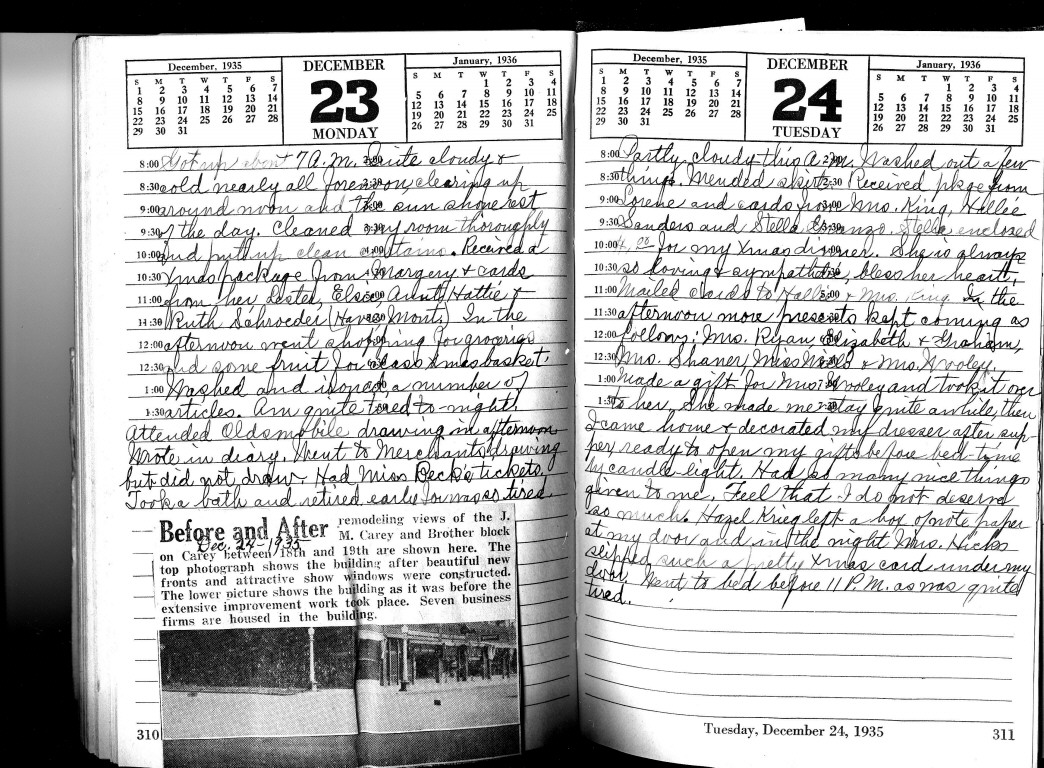 December, 1935
S M T W T F S
1 2 3 4 5 6 7
8 9 10 11 12 13 14
15 16 17 18 19 20 21
22 23 24 25 26 27 28
29 30 31
DECEMBER
23
MONDAY
January, 1936
S M T W T F S
1 2 3 4
5 6 7 8 9 10 11
12 13 14 15 16 17 18
19 20 21 22 23 24 25
26 27 28 29 30 31
8:00 Got up about 7 A.M. Quite cloudy &
8:30 cold nearly all forenoon, clearing up
9:00 around noon and the sun shone rest
9:30 of the day. Cleaned my room thoroughly
10:00 and put up clean curtains. Received a
10:30 Xmas package from Margery & cards
11:00 from her sister, Elsie, Aunt Hattie &
11:30 Ruth Schroeder (Havre Mont.) In the
12:00 afternoon went shopping for groceries
12:30 and some fruit for class Xmas basket.
1:00 Washed and ironed a number of
1:30 articles. Am quite tired to-night.
Attended Oldsmobile drawing in afternoon
Wrote in diary. Went to Merchants drawing
but did not draw. Had Miss Beck's tickets.
Took a bath and retired early for was so tired.
Before and After remodeling views of the J.
Dec. 24-1935
M. Carey and Brother block
on Carey between 18th and 19th are shown here. The
top photograph shows the building after beautiful new
fronts and attractive show windows were constructed.
The lower picture shows the building as it was before the
extensive improvement work took place. Seven business
firms are housed in the building.
310
December, 1935
S M T W T F S
1 2 3 4 5 6 7
8 9 10 11 12 13 14
15 16 17 18 19 20 21
22 23 24 25 26 27 28
29 30 31
DECEMBER
24
TUESDAY
January, 1936
S M T W T F S
1 2 3 4
5 6 7 8 9 10 11
12 13 14 15 16 17 18
19 20 21 22 23 24 25
26 27 28 29 30 31
8:00 Partly cloudy this A.M. Washed out a few
8:30 things. Mended skirt. Received pkge from
9:00 Lorene and cards from Mrs. King, Hallie
9:30 Sanders and Stella. Stella enclosed
10:00 for my Xmas dinner. She is always
10:30 so loving & sympathetic, bless her heart.
11:00 Mailed cards to Hallie & Mrs. King. In the
11:30 afternoon more presents kept coming as
12:00 follows: Mrs. Ryan, Elizabeth & Graham,
12:30 Mrs. Shaner, Miss & Mrs. Wooley.
1:00 Made a gift for Mrs. Wooley and took it over
1:30 to her. She made me stay quite awhile, then
I came home & decorated my dresser after sup-
per, ready to open my gifts before bed-time
by candle-light. Had so many nice things
given to me. Feel that I do not deserve
so much. Hazel Krieg left a box of note paper
at my door and in the night Mrs. Hicks
slipped such a pretty Xmas card under my
door. Went to bed before 11 P.M. as was quite
tired.
Tuesday, December 24, 1935
311